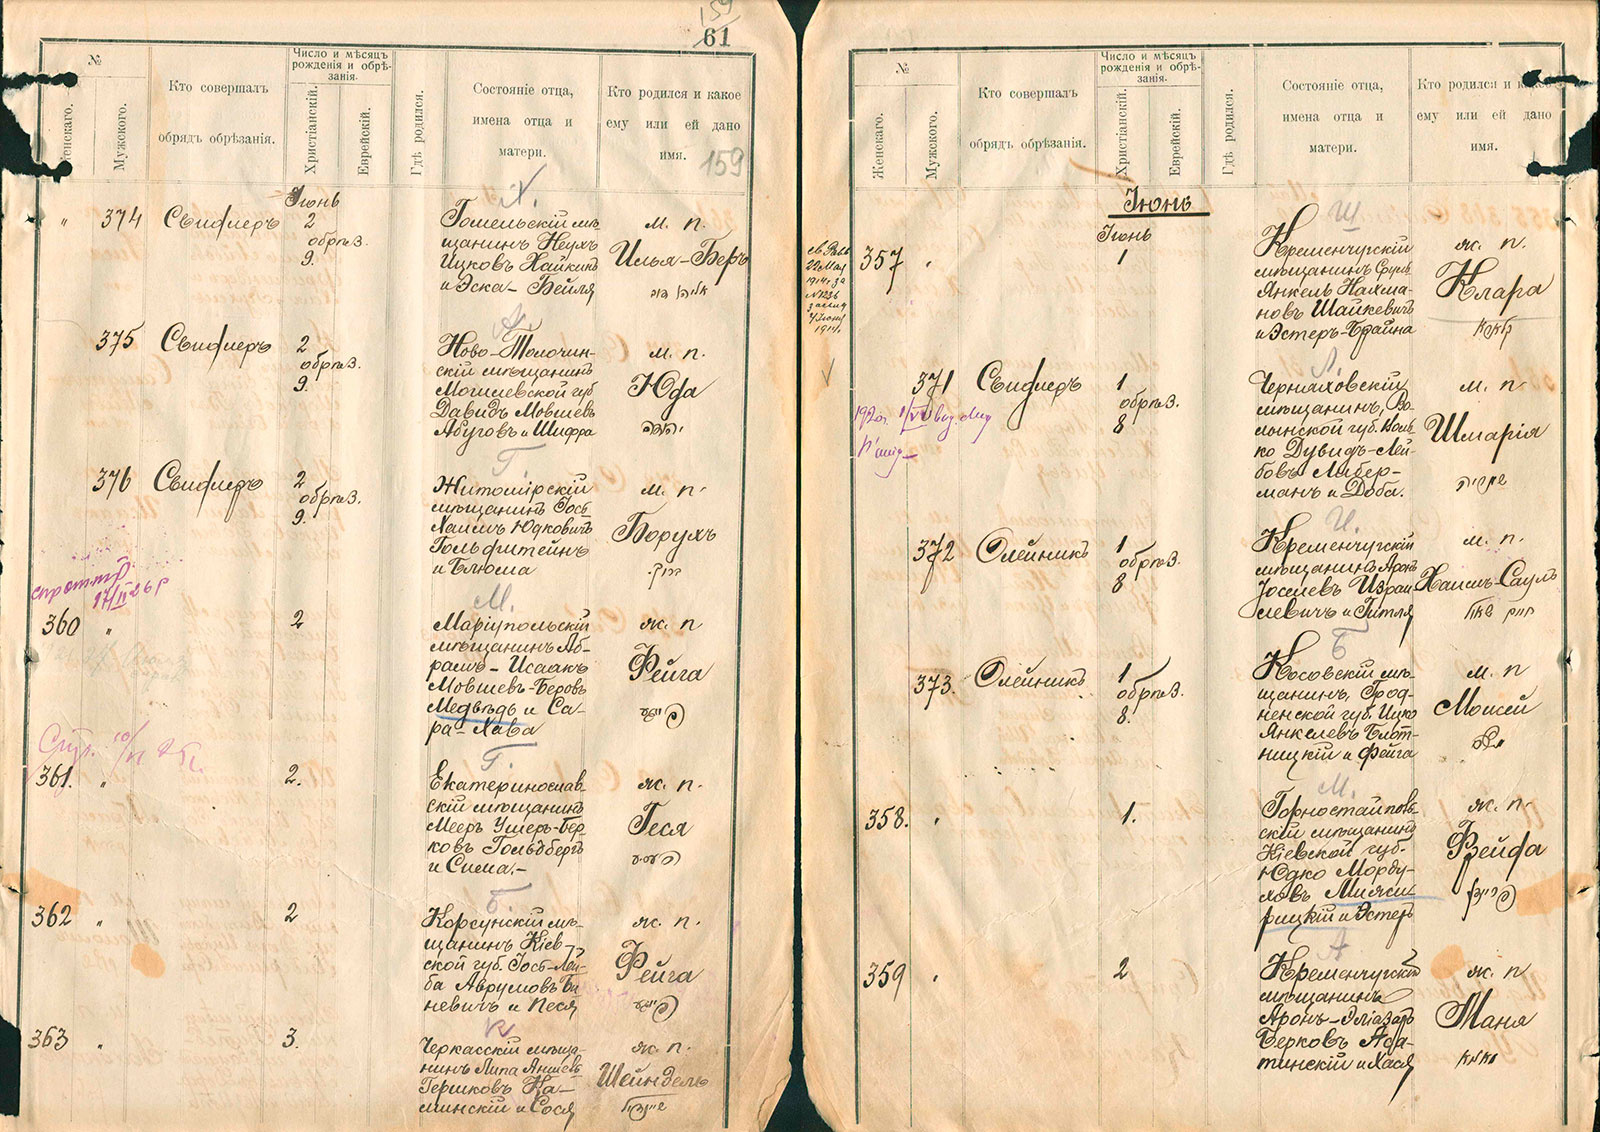 159
61
№
Женскаго.
Мужского.
Кто совершалъ
обрядъ обрѣзанія.
Число и мѣсяцъ
рожденія и обрѣ-
занія.
Христіанскій.
Еврейскій.
Гдѣ родился.
Состояніе отца,
имена отца и
матери.
Кто родился и какое
ему или ей дано
имя.
159
Іюнь
Х.
" 374 Свифлеръ 2
обрѣз.
9.
Гомельскій мѣ-
щанинъ Неухъ
Ицковъ Хайкинъ
и Эска-Бейля
м. п.
Илья-Беръ
А.
375 Свифлеръ 2
обрѣз.
9.
Ново-Толочин-
скій мѣщанинъ
Могилевской губ
Давидъ Мовшевъ
Абуговъ и Шифра
м. п.
Юда
Г
376 Свифлеръ 2
обрѣз.
9.
Житомірскій
мѣщанинъ Іосъ
Хаимъ Юдковичъ
Гольфштейнъ
и Блюма
м. п.
Борухъ
ברוך.
17/II 26 г
М.
360 " 2
Маріупольскій
мѣщанинъ Аб-
рамъ-Исаакъ
Мовшевъ-Беровъ
Медвѣдь и Са-
ра-Хава
ж. п
Фейга
פייגע
10/VI 25 г.
Г.
361. " 2.
Екатеринослав-
скій мѣщанинъ
Мееръ Ушеръ-Бер-
ковъ Гольдбергъ
и Сима.-
ж. п.
Геся
Б.
362 " 2
Корсунскій мѣ-
щанинъ Кіев-
ской губ. Іосъ-Лей-
ба Аврумовъ Би
невичъ и Песя
ж. п.
Фейга
פייגע
К
363 " 3.
Черкасскій мѣща-
нинъ Липа Аншев-
Гершковъ Ка-
минскій и Сося
ж. п.
Шейндель
שיינדיל
№
Женскаго.
Мужского.
Кто совершалъ
обрядъ обрѣзанія.
Число и мѣсяцъ
рожденія и обрѣ-
занія.
Христіанскій.
Еврейскій.
Гдѣ родился.
Состояніе отца,
имена отца и
матери.
Кто родился и какое
ему или ей дано
имя.
Іюнь
Іюнь
Ш
22 Мая
1914 г за
№ 1236
4 Іюня
1914 г.
357 " 1
Кременчугскій
мѣщанинъ Сруль
Янкель Нахма-
новъ Шайкевичъ
и Эстеръ-Брайна
ж. п.
Клара
קלארא
Л.
371 Свифлеръ 1
обрѣз.
8
Черняховскій
мѣщанинъ, Во-
лынской губ. Воль-
ко Дувидъ-Лей-
бовъ Либер-
манъ и Доба.
м. п.
Шмарія
שמריה
И.
372 Олейникъ 1
обрѣз.
8
Кременчугскій
мѣщанинъ Аронъ
Іоселевъ Израи-
левичъ и Гитля
м. п.
Хаимъ-Саулъ
חיים שאול
Б
373. Олейникъ 1
обрѣз.
8.
Косовскій мѣ-
щанинъ, Грод-
ненской губ. Ицко
Янкелевъ Блот-
ницкій и Фейга
м. п
Моисей
משה
М.
358. " 1.
Горностайполь-
скій мѣщанинъ
Кіевской губ.
Юдко Морду-
ховъ Мияси-
рицкій и Эстеръ
ж. п.
Фрейда
פריידל
А
359 " 2
Кременчугскій
мѣщанинъ
Аронъ-Эліазаръ
Берковъ Аба-
тинскій и Хася
ж. п
Маня
מאניא